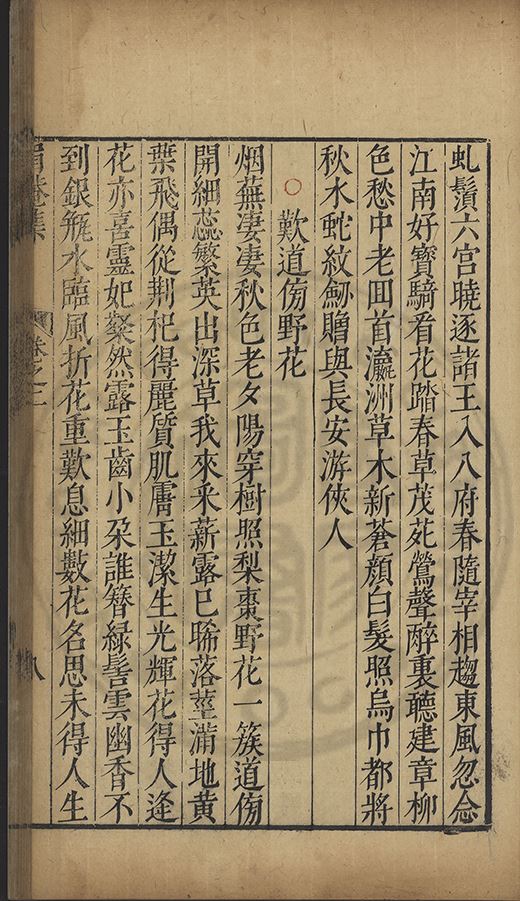 虬鬚六宫曉逐諸王入八府春隨宰相趨東風忽念
江南好寶騎看花踏春草茂苑鶯聲醉裏聽建章柳
色愁中老囬首瀛洲草木新蒼顔白髮照烏巾都將
秋水蛇紋劒贈與長安游俠人
歎道傍野花
烟蕪凄凄秋色老夕陽穿樹照梨棗野花一簇道傍
開細蕊繁英出深草我來采薪露已晞落葉滿地黄
葉飛偶從荆杞得麗質肌膚玉潔生光輝花得人逢
花亦喜靈妃粲然露玉齒小朶誰簪緑髻雲幽香不
到銀瓶水臨風折花重歎息細數花名思未得人生
卷之二
八